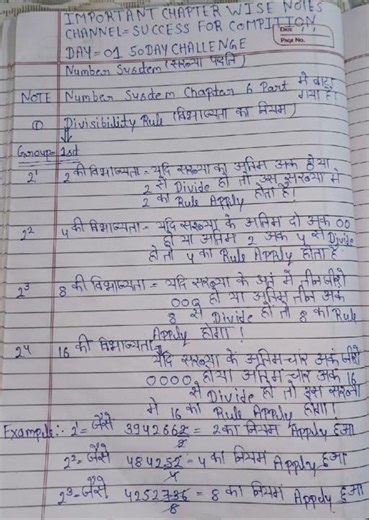 IMPORTANT CHAPTER WISE NOTES
CHANNEL=SUCCESS FOR COMPITION
DAY=01 50DAY CHALLENGE
Date
Page No.
Number Susdem (संख्या पद्धति)
NOTE Number Susdem Chapter 6 Part में बाटा गया है।
① Divisibility Rule (विभाज्यता का नियम)
Group= 1st
2¹ 2 की विभाज्यता = यदि संख्या का अंतिम अंक 0 हो या
2 से Divide हो तो उस संख्या में
2 का Rule Apply होता है
2² 4 की विभाज्यता - यदि संख्या के अंतिम दो अंक 00
हो या अंतिम 2 अंक 4 से Divide
हो तो 4 का Rule Apply होता है
2³ 8 की विभाज्यता = यदि संख्या के अंत में तीन जीरो
000 हो या अंतिम तीन अंक
8 से Divide हो तो 8 का Rule
Apply होगा !
2⁴ 16 की विभाज्यता = यदि संख्या के अंतिम चार अंक जीरो
0000 हो या अंतिम चार अंक 16
से Divide हो तो इस संख्या
मे 16 का Rule Apply होगा !
Example:- 2¹ = जैसे 3942662/2 = 2 का नियम Apply हुआ
2² - जैसे 484252/4 - 4 का नियम Apply हुआ
2³ - जैसे 4252736/8 = 8 का नियम Apply हुआ